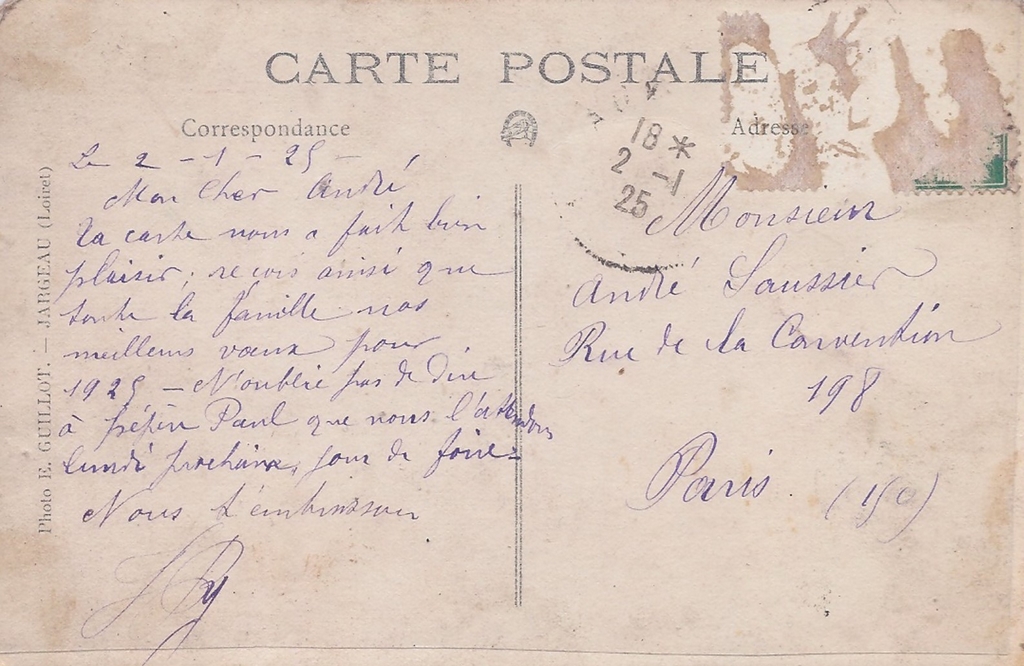 CARTE POSTALE
Correspondance
Adresse
18 *
2 -1
25
Le 2 - 1 - 25 -
Mon Cher André
Ta carte nous a fait bien
plaisir ; reçois ainsi que
toute la famille nos
meilleurs vœux pour
1925 - N'oublie pas de dire
à pépère Paul que nous l'attendons
lundi prochain, jour de foire -
Nous t'embrassons
Monsieur
André Saussier
Rue de la Convention
198
Paris
Photo E. GUILLOT. — JARGEAU (Loiret)